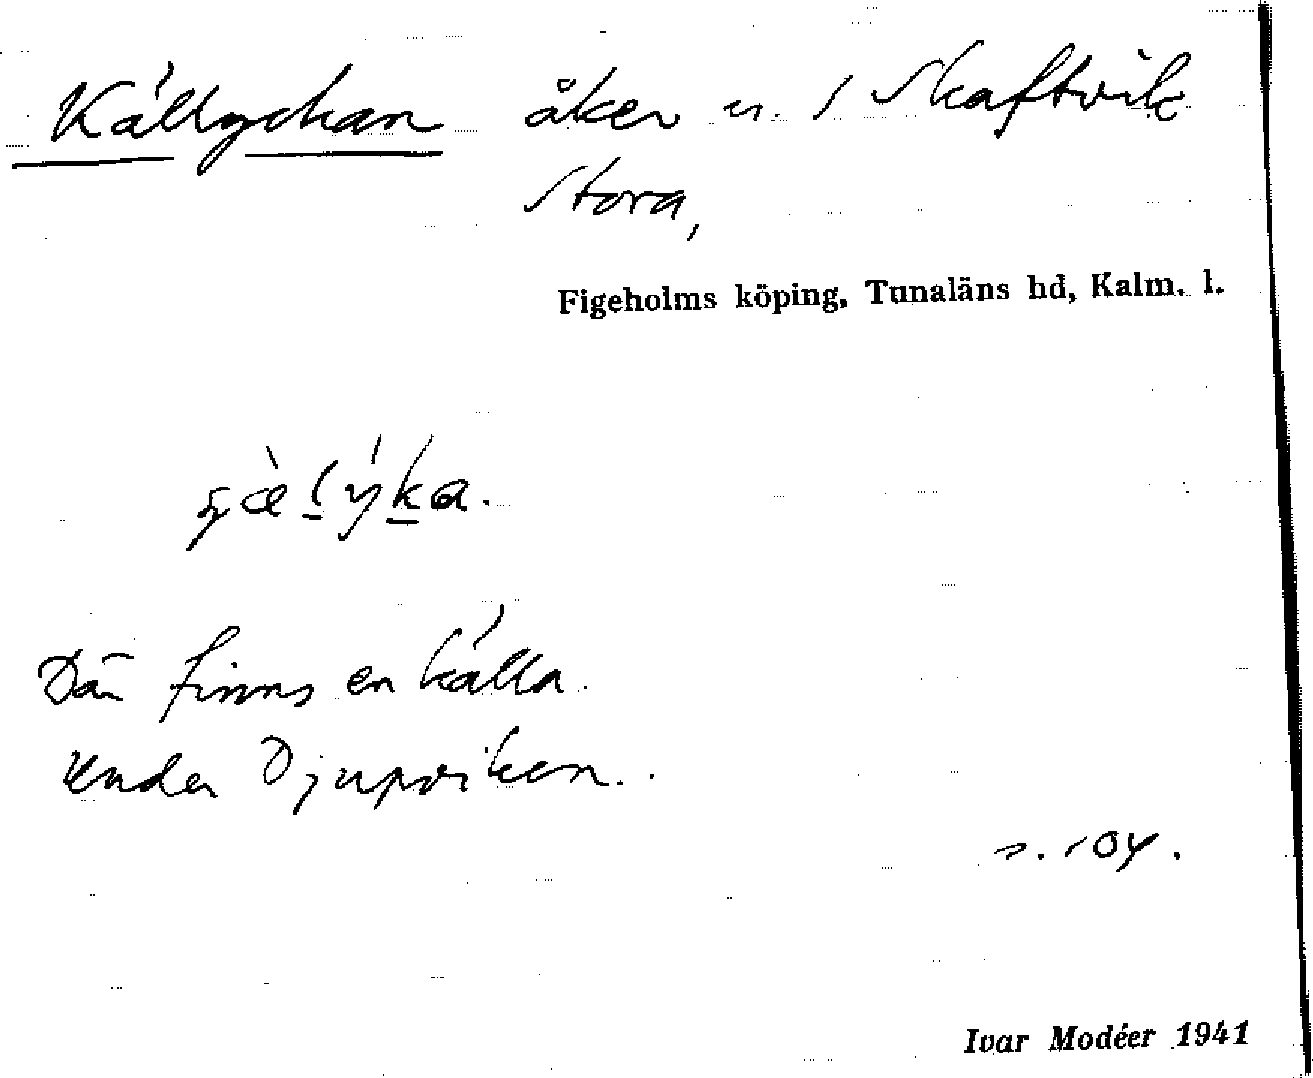 Källyckan åker u. / Skaftvik
Stora,
Figeholms köping, Tunaläns hd, Kalm. l.
Där finns en källa.
Under Djupviken.
s. 104.
Ivar Modéer 1941